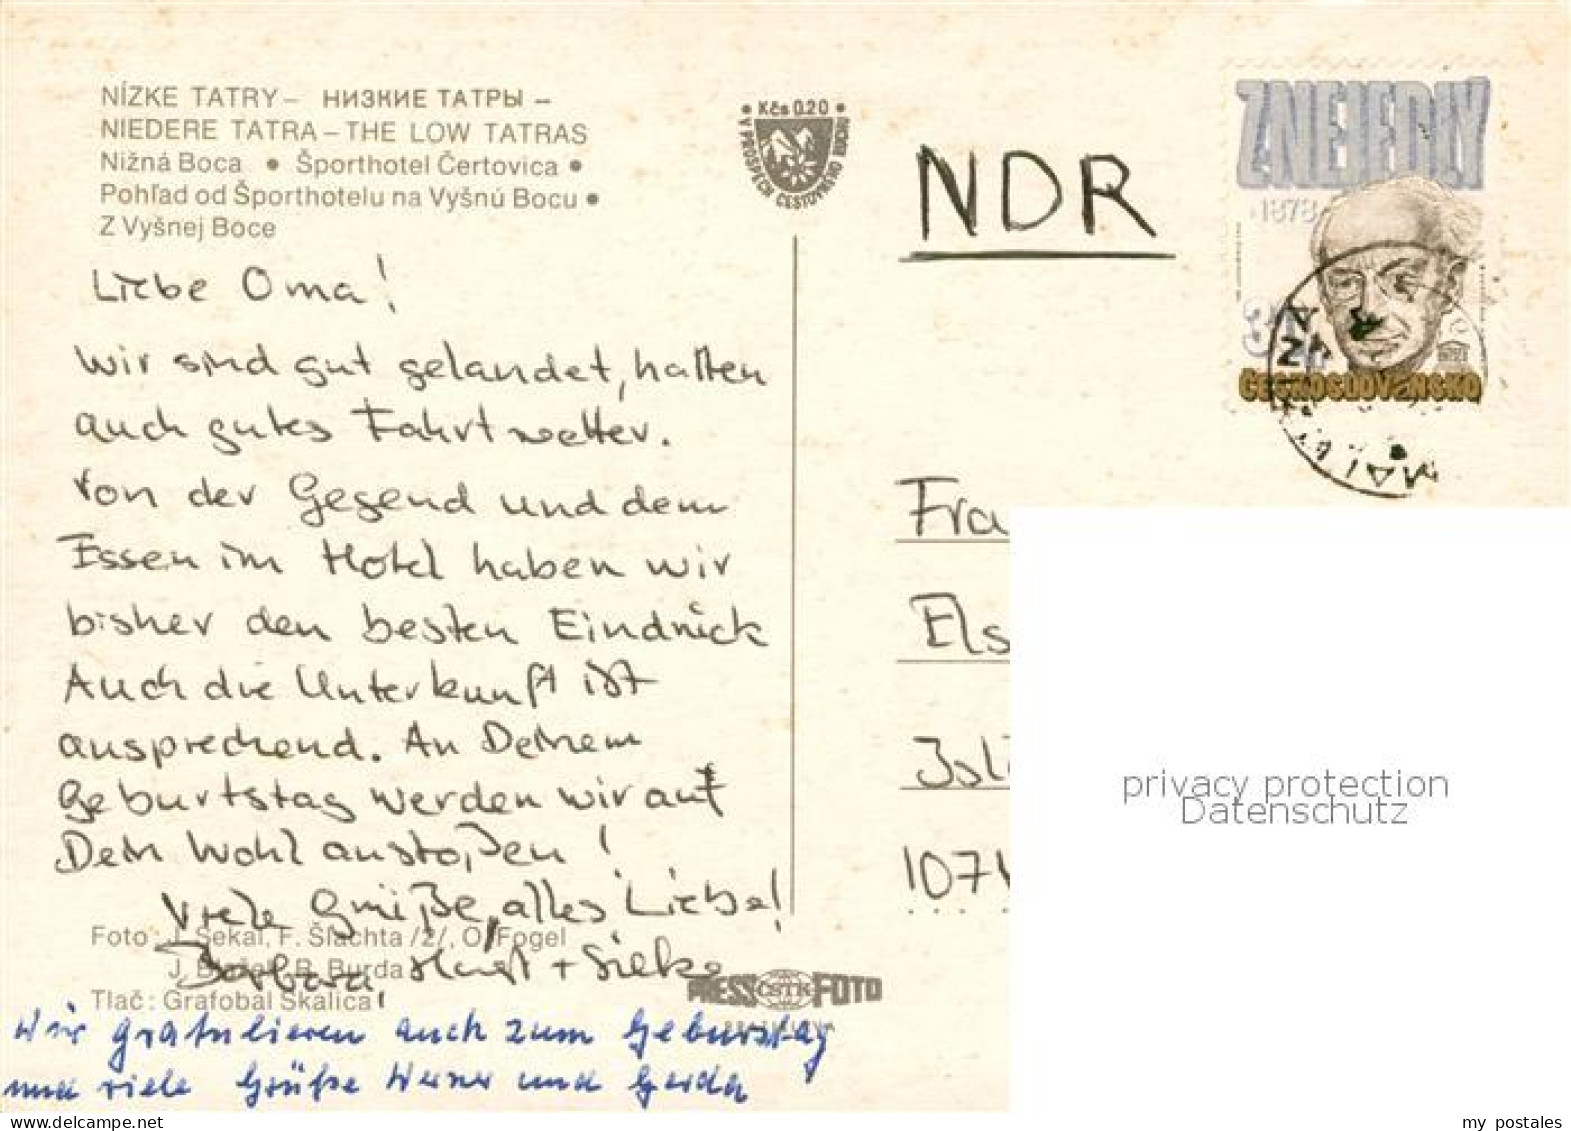 NÍZKE TATRY – НИЗКИЕ ТАТРЫ –
NIEDERE TATRA – THE LOW TATRAS
Nižná Boca • Športhotel Čertovica •
Pohľad od Športhotelu na Vyšnú Bocu •
Z Vyšnej Boce
Liebe Oma!
Wir sind gut gelandet, hatten
auch gutes Fahrtwetter.
Von der Gegend und dem
Essen im Hotel haben wir
bisher den besten Eindruck
Auch die Unterkunft ist
ansprechend. An Deinem
Geburtstag werden wir auf
Dein Wohl anstoßen!
Viele Grüße, alles Liebe!
Barbara, Horst + Silke
Foto: J. Sekal, F. Šlachta /2/, O. Fogel
B. Burda
Tlač: Grafobal Skalica
PRESSFOTO
ČSTK
Wir gratulieren auch zum Geburstag
und viele Grüße Werner und Gerda
• Kčs 0.20 •
V PROSPECH CESTOVNÉHO RUCHU
NDR
Z NEJEDLÝ
1878
ČESKOSLOVENSKO
Fra
Els
Jsl
107
privacy protection
Datenschutz
my_postales